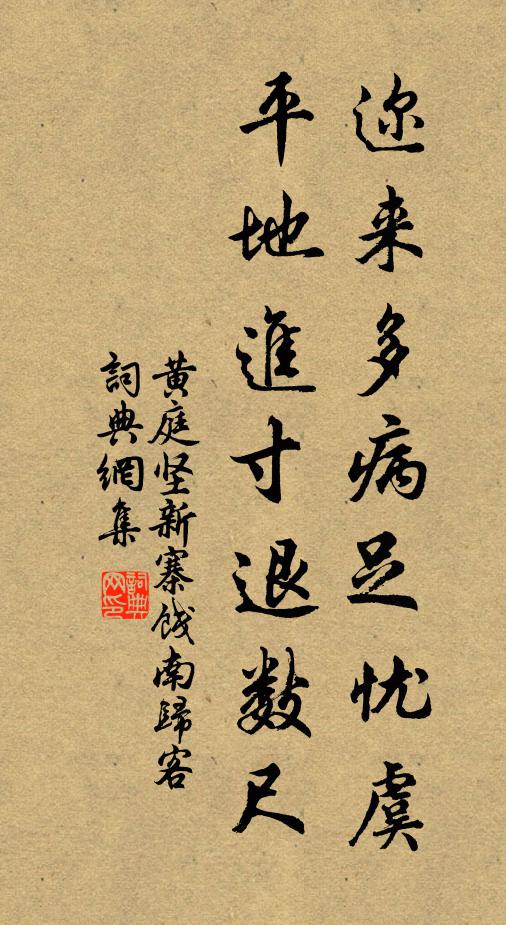 迩来多病足忧虞
平地進寸退数尺
黄庭坚新寨饯南歸客
詞典網集
詞典网印